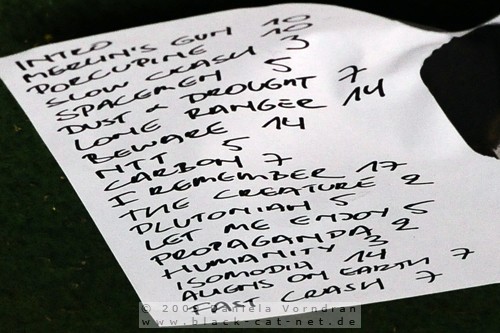 INTRO
MERLIN'S GUN 10
PORCUPINE 10
SLOW CRASH 3
SPACEMEN 5
DUST & DROUGHT 7
LONE RANGER 14
BEWARE 14
NTT 5
CARBON 7
I REMEMBER 17
THE CREATURE 2
PLUTONIAN 5
LET ME ENJOY 5
PROPAGANDA 2
HUMANITY 3
ISOMODIA 14
ALIENS ON EARTH 7
FAST CRASH 7
Daniela Vorndran
www.black-cat-net.de